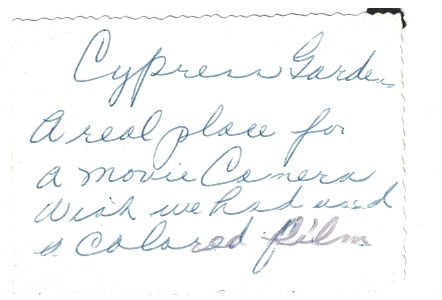 Cypress Gardens
A real place for
a movie Camera
Wish we had used
a colored film